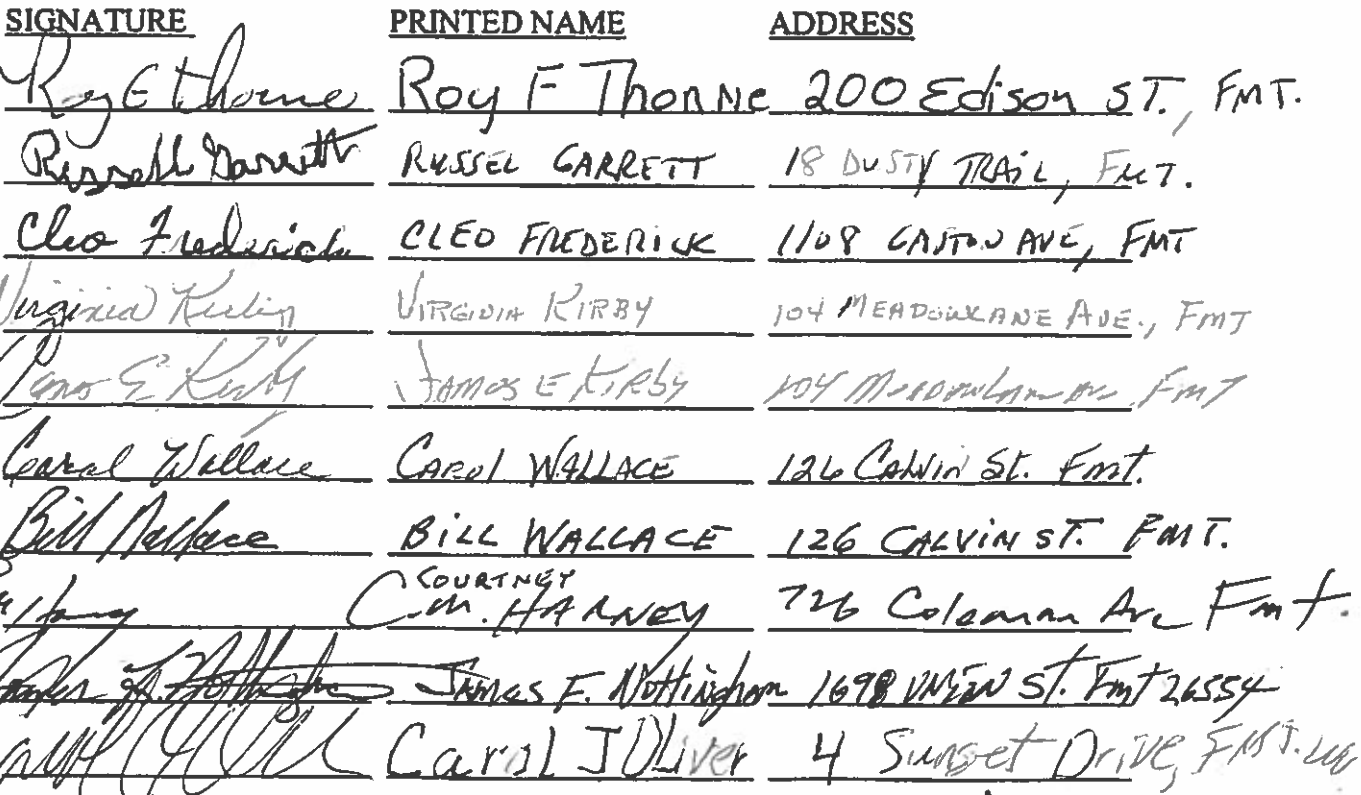 SIGNATURE PRINTED NAME ADDRESS
Roy E Thorne Roy F Thonne 200 Edison ST., FMT.
Russell Garrett RUSSEL GARRETT 18 DUSTY TRAIL, FMT.
Cleo Frederick CLEO FREDERICK 1108 GASTON AVE, FMT
Virginia Kirby VIRGINIA KIRBY 104 MEADOWLANE AVE., FMT
James E Kirby JAMES E KIRBY 104 Meadowlane Ave FMT
Carol Wallace CAROL WALLACE 126 CALVIN St. Fmt.
Bill Wallace BILL WALLACE 126 CALVIN ST. FMT.
COURTNEY
C.M. HARNEY 726 Coleman Ave Fmt.
James F. Nottingham 1698 UNION St. Fmt 26554
Carol J Oliver 4 Sunset Drive, FMT.